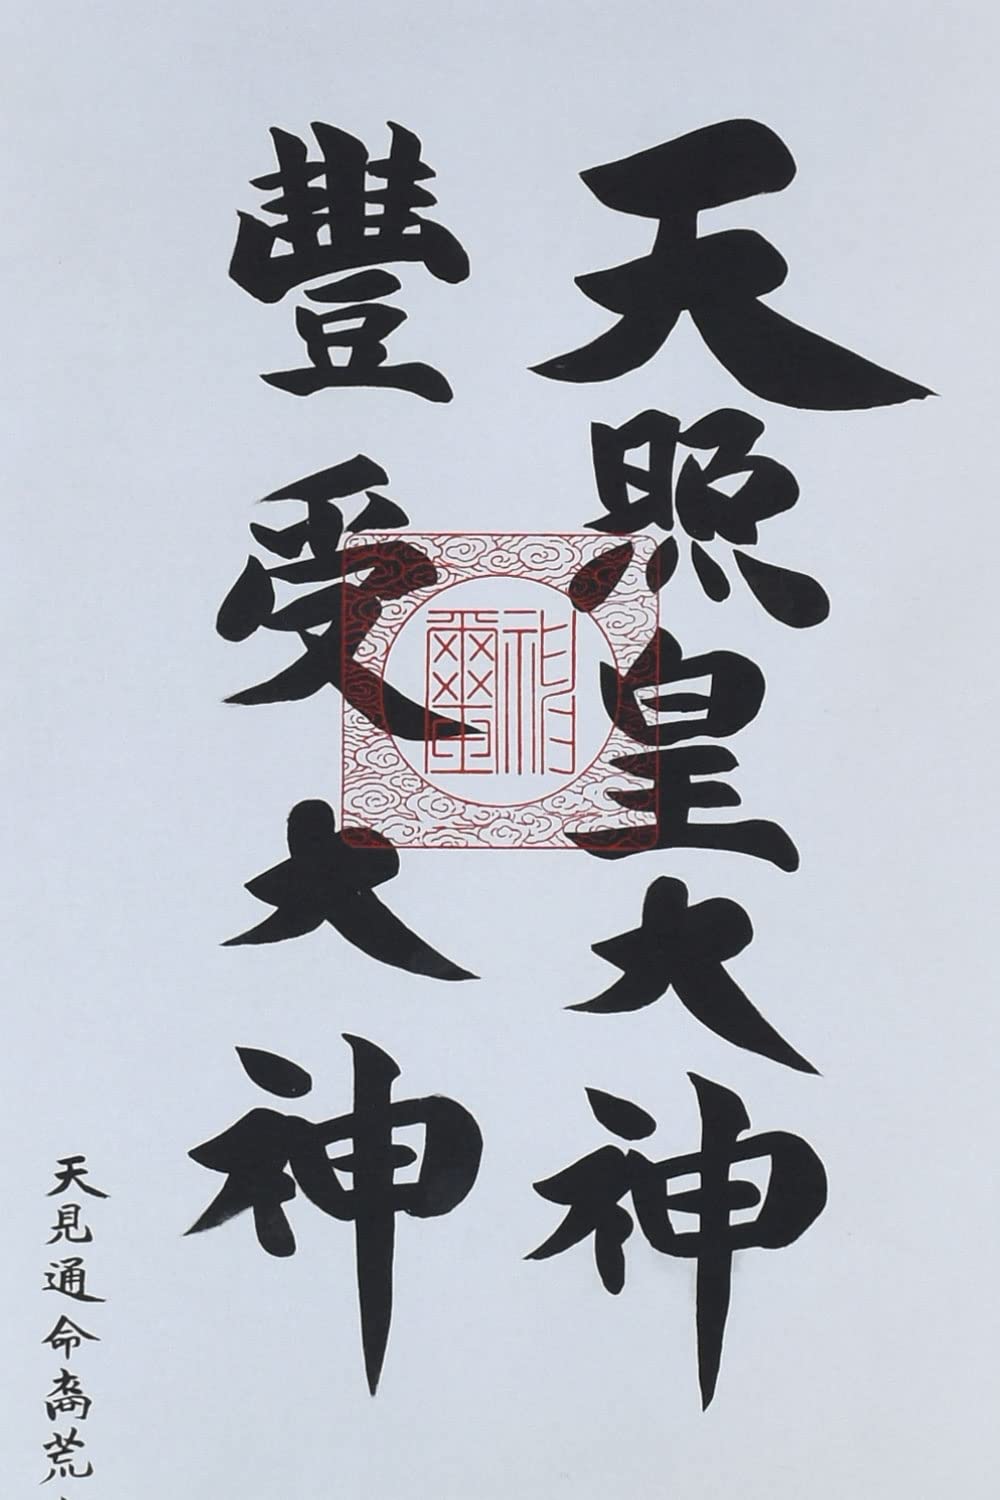 天照皇大神
豐受大神
天見通命裔荒